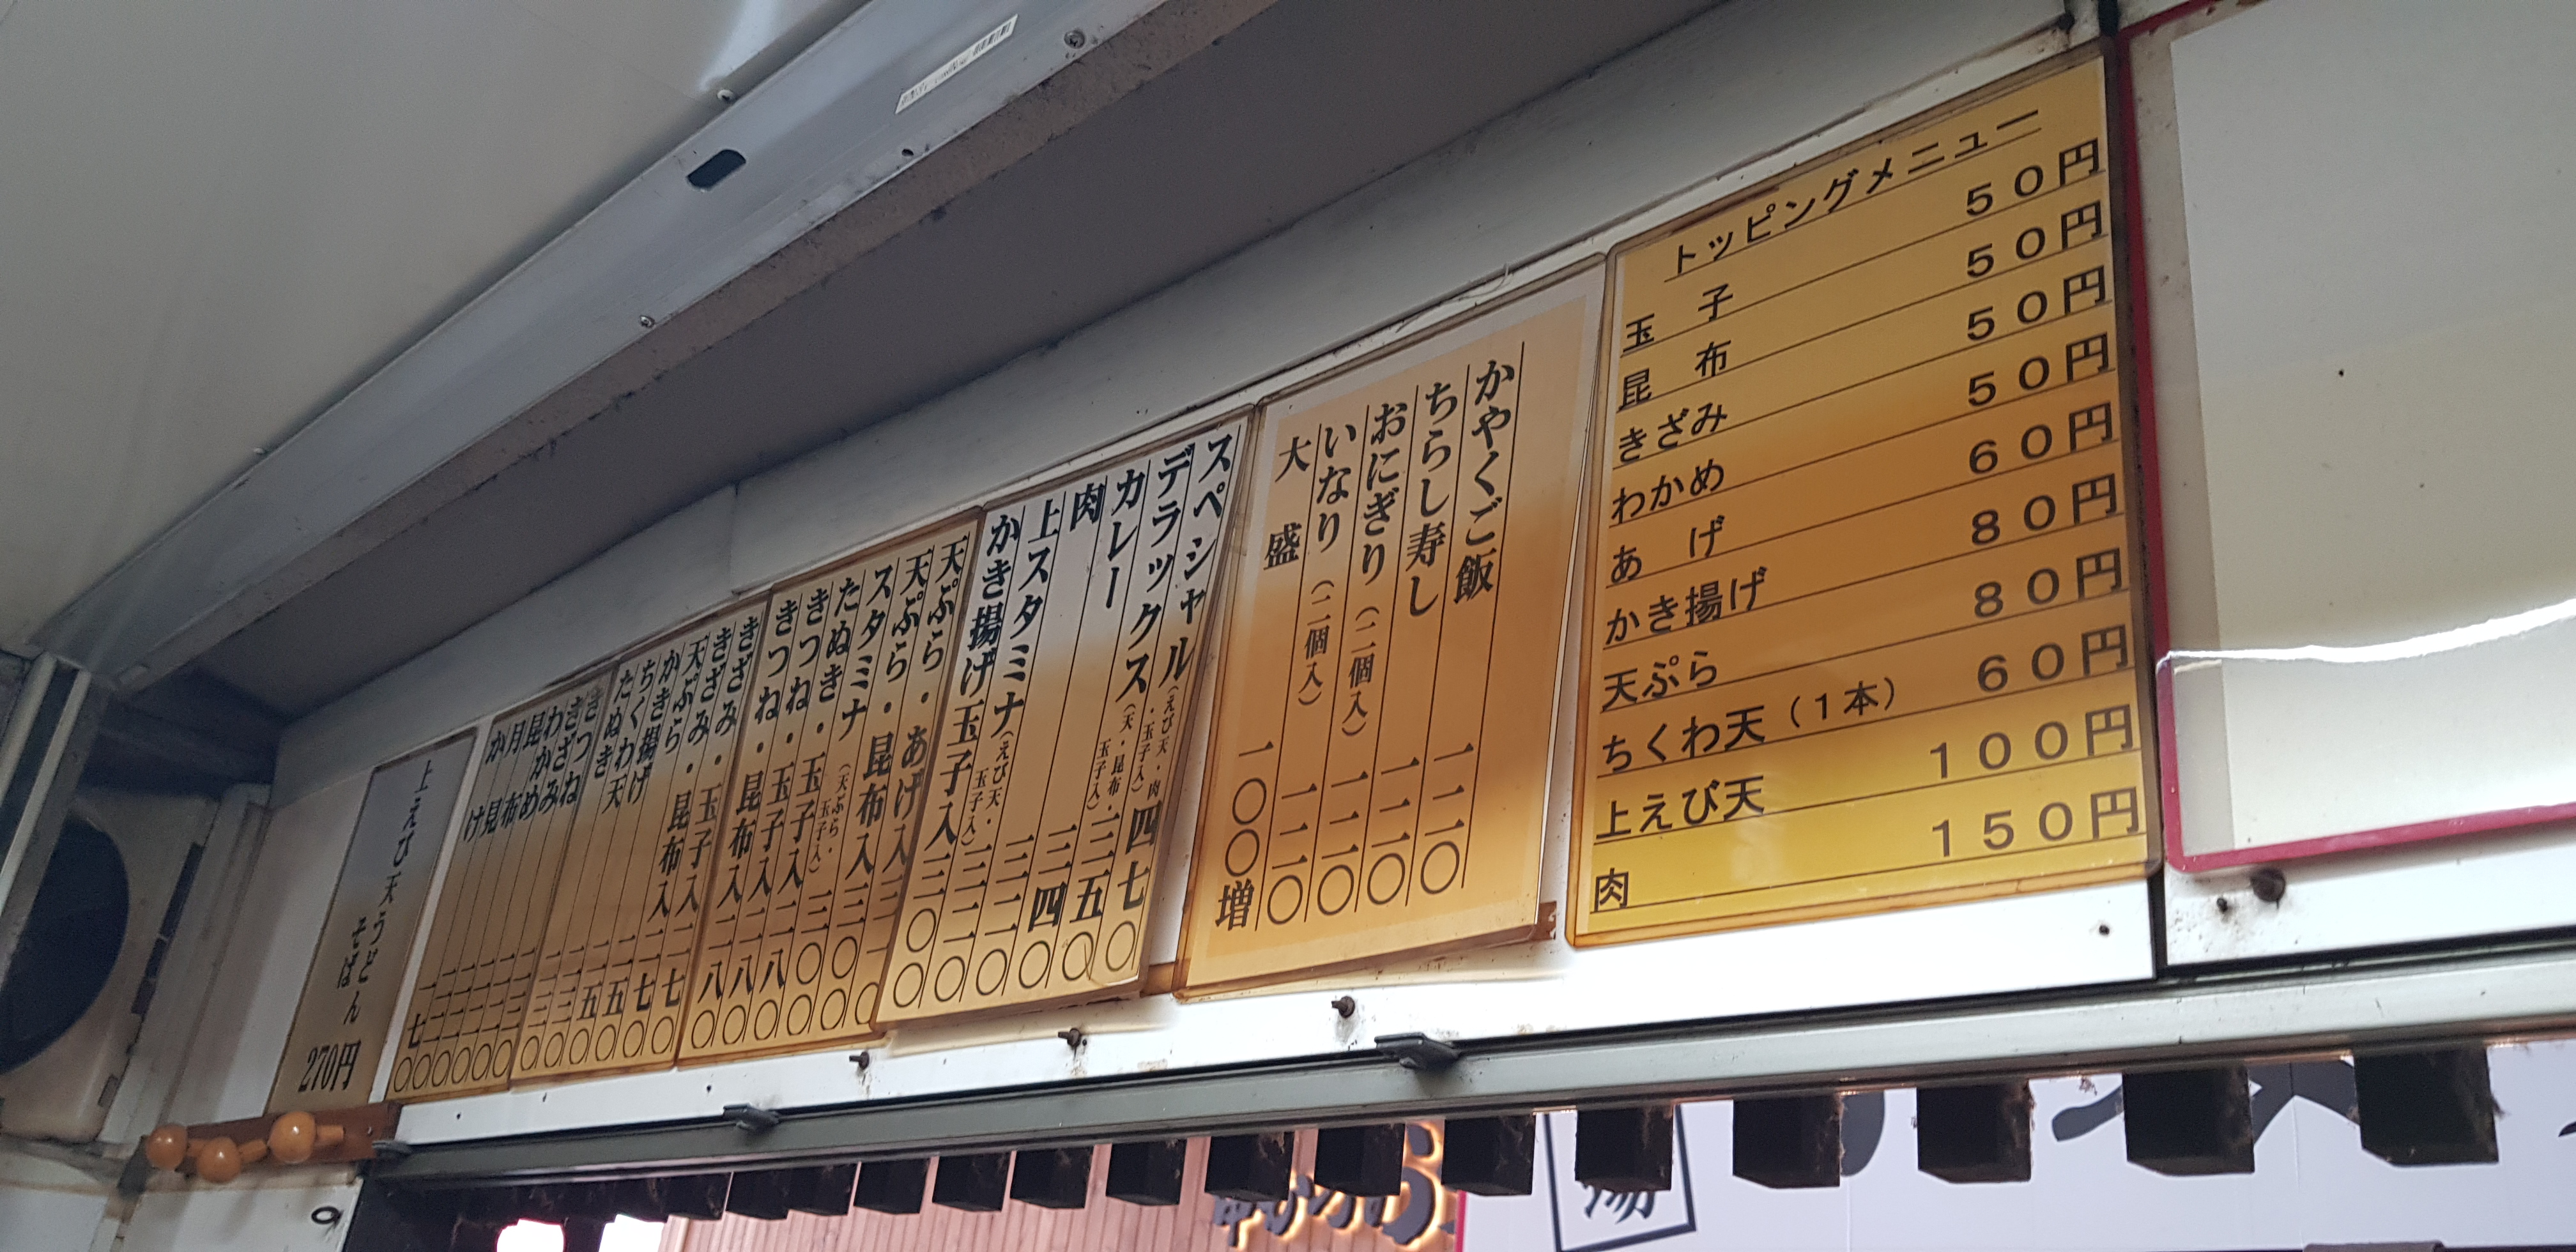 トッピングメニュー
玉子 50円
昆布 50円
きざみ 50円
わかめ 50円
あげ 60円
かき揚げ 80円
天ぷら 80円
ちくわ天(1本) 60円
上えび天 100円
肉 150円
かやくご飯 一二〇
ちらし寿し 一二〇
おにぎり(二個入) 一二〇
いなり(二個入) 一二〇
大盛 一〇〇増
スペシャル(えび天・肉・玉子入) 四七〇
デラックス(天・昆布・玉子入) 三五〇
カレー 三四〇
肉 三二〇
上スタミナ(えび天・玉子入) 三二〇
かき揚げ玉子入 三〇〇
天ぷら・あげ入
天ぷら・昆布入 三〇〇
スタミナ(天ぷら・玉子入) 三〇〇
たぬき・玉子入 二八〇
きつね・玉子入 二八〇
きつね・昆布入 二八〇
きざみ・玉子入 二七〇
きざみ・昆布入 二七〇
天ぷら 二五〇
かき揚げ 二五〇
ちくわ天 二三〇
たぬき 二三〇
きつね 二三〇
きざみ 二二〇
わかめ 二二〇
昆布 二二〇
月見 二二〇
かけ 一七〇
上えび天うどん
そば
270円